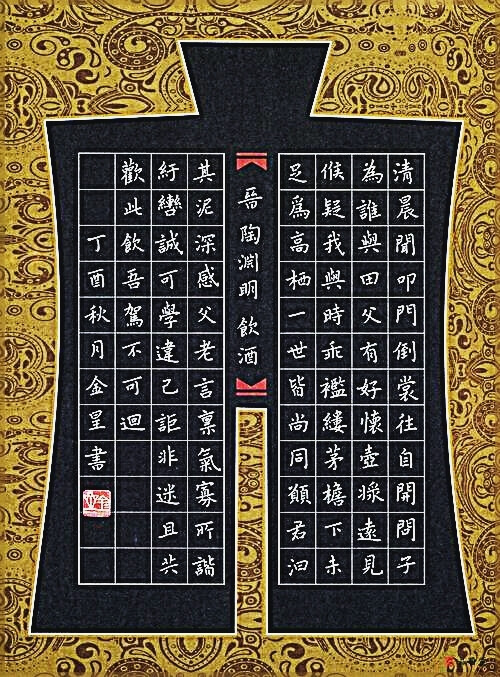 清晨聞叩門倒裳往自開問子
為誰與田父有好懷壺漿遠見
候疑我與時乖襤縷茅檐下未
足爲高栖一世皆尚同願君汩
晉陶淵明飲酒
其泥深感父老言稟氣寡所諧
紆轡誠可學違己詎非迷且共
歡此飲吾駕不可迴
丁酉秋月金星書